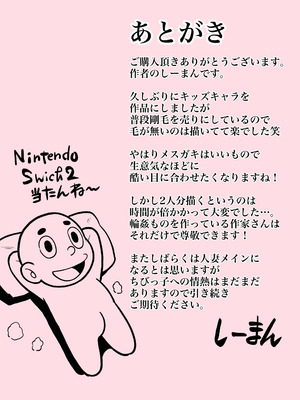 あとがき
ご購入頂きありがとうございます。
作者のしーまんです。
久しぶりにキッズキャラを
作品にしましたが
普段剛毛を売りにしているので
毛が無いのは描いてて楽でした笑
やはりメスガキはいいもので
生意気なほどに
酷い目に合わせたくなりますね！
しかし2人分描くというのは
時間が倍かかって大変でした…。
輪姦ものを作っている作家さんは
それだけで尊敬できます！
またしばらくは人妻メインに
なるとは思いますが
ちびっ子への情熱はまだまだ
ありますので引き続き
ご期待ください。
しーまん
Nintendo
Swich2
当たんね〜